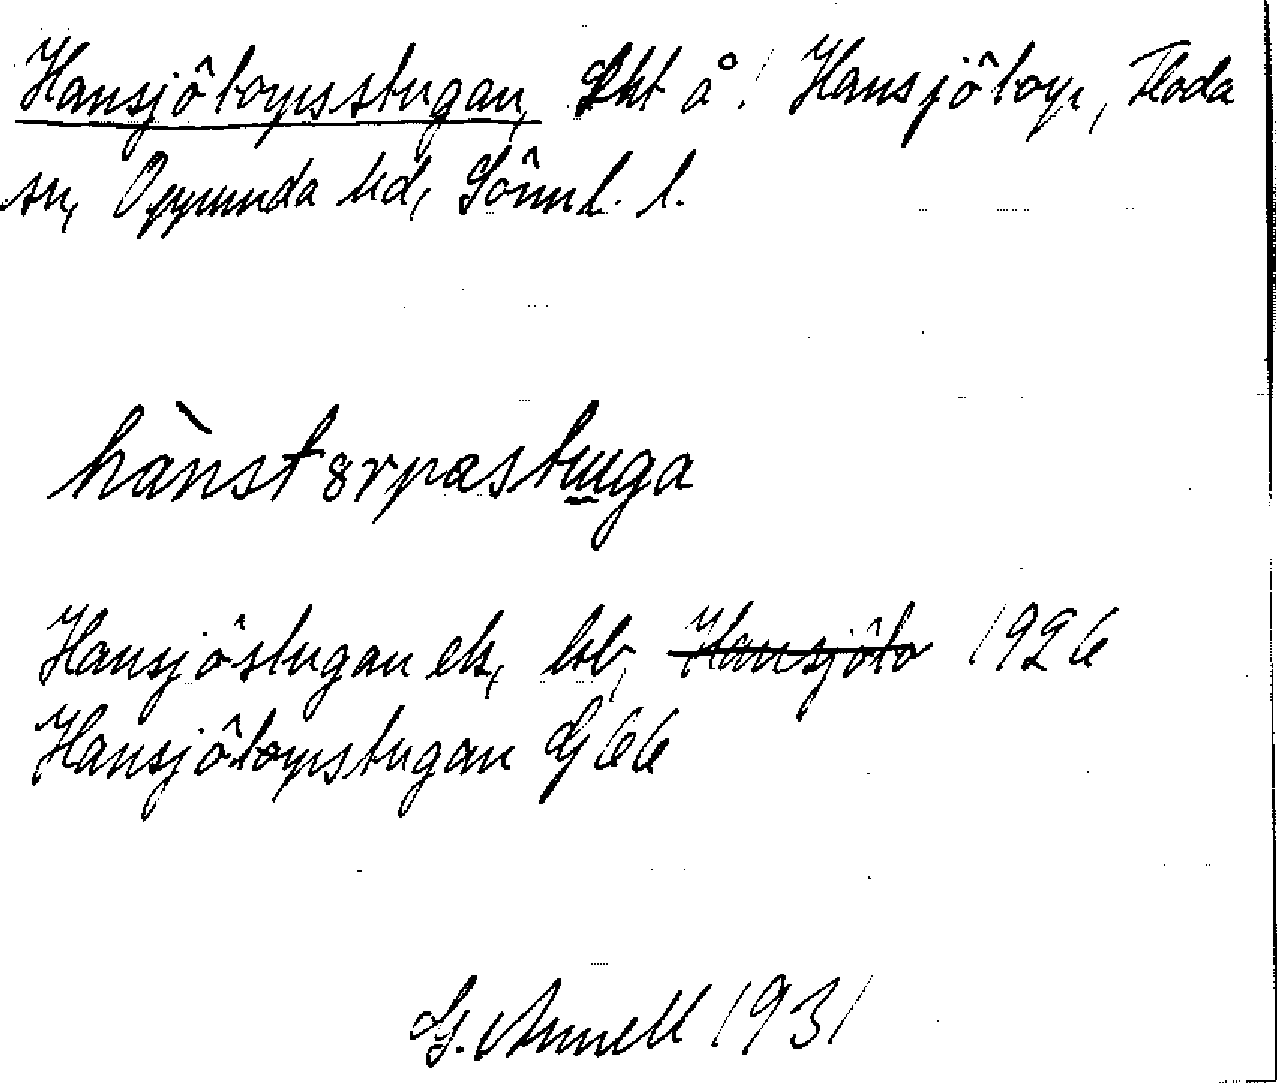 Hansjötorpsstugan, Lht å! Hansjötorp, Floda
sn, Oppunda hd, Sörml. l.
hànstorpastuga
Hansjöstugan ek, kb, Hansjöto 1926
Hansjötorpstugan Gj 66
G. Annell 1931